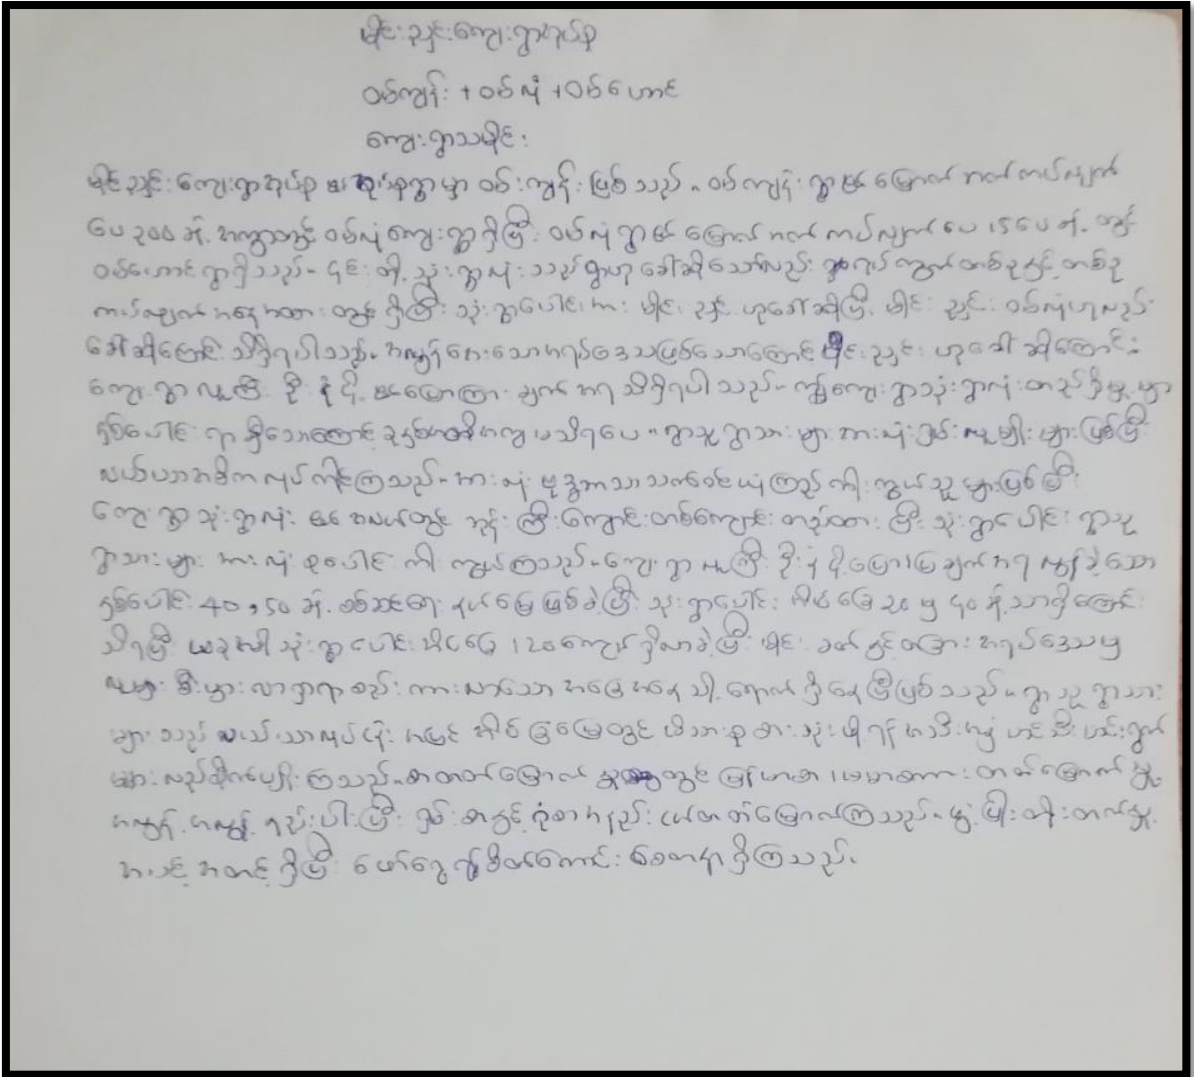 မိုင်းညှင်းကျေးရွာအုပ်စု
ဝမ်ကျန်း + ဝမ်လုံ + ဝမ်ဟောင်
ကျေးရွာသမိုင်း
မိုင်းညှင်းကျေးရွာအုပ်စု ရွာမှာ ဝမ်းကျန်း ဖြစ်သည်။ ဝမ်ကျန်း ရွာ၏ မြောက်ဘက် ကပ်လျှက်
ပေ ၃၀၀ ခန့် အကွာတွင် ဝမ်လုံကျေးရွာရှိပြီး ဝမ်လုံရွာ၏ မြောက်ဘက် ကပ်လျှက် ပေ ၁၅ ပေ ခန့် တွင်
ဝမ်ဟောင်ရွာရှိသည်။ ၎င်းတို့ သုံးရွာလုံးသည် ရွာဟုခေါ်ဆိုသော်လည်း ရပ်ကွက် တစ်ခုနှင့် တစ်ခု
ကပ်လျှက် အနေအထားတွင် ရှိပြီး သုံးရွာပေါင်းအား မိုင်းညှင်း ဟုခေါ်ဆိုပြီး မိုင်းညှင်း ဝမ်လုံဟုလည်း
ခေါ်ဆိုကြောင်း သိရှိရပါသည်။ အလွန်ဝေးသောအရပ်ဒေသဖြစ်သောကြောင့် မိုင်းညှင်း ဟုခေါ်ဆိုကြောင်း
ကျေးရွာလူကြီး ဦးနုံပို ၏ပြောကြားချက်အရ သိရှိရပါသည်။ ကျေးရွာသုံးရွာလုံးတည်ရှိမှုမှာ
နှစ်ပေါင်း ရာရှိသောကြောင့် ခုနှစ်အတိအကျမသိရပေ။ ရွာသူရွာသားများအားလုံး ရှမ်းလူမျိုးများဖြစ်ပြီး
လယ်ယာအဓိကလုပ်ကိုင်ကြသည်။ အားလုံး ဗုဒ္ဓဘာသာသက်ဝင်ယုံကြည်ကိုးကွယ်သူများဖြစ်ပြီး
ကျေးရွာသုံးရွာလုံး၏ အလယ်တွင် ဘုန်းကြီးကျောင်းတစ်ကျောင်း တည်ထားပြီး သုံးရွာပေါင်း ရွာသူ
ရွာသားများ အားလုံး စုပေါင်းကိုးကွယ်ကြသည်။ ကျေးရွာလူကြီး ဦးနုံပိုပြောပြချက်အရ လွန်ခဲ့သော
နှစ်ပေါင်း 40, 50 ခန့် စစ်ဆင်ရေးနယ်မြေဖြစ်ခဲ့ပြီး သုံးရွာပေါင်း အိမ်ခြေ 20 မှ ၄၀ ခန့်သာရှိကြောင်း
သိရပြီး ယခုအခါ သုံးရွာပေါင်းအိမ်ခြေ 120 ကျော်ရှိလာခဲ့ပြီး မိုင်းခတ်နှင့်တခြားအရပ်ဒေသမှ
လူများ စီးပွားလာရှာရာစည်းကားလာသောအခြေအနေသို့ ရောက်ရှိနေပြီဖြစ်သည်။ ရွာသူရွာသား
များသည် လယ်ယာလုပ်ငန်းအပြင် အိမ်ခြံမြေတွင် မိသားစု စားသုံးဖို့ရန် အသီးအနှံ ဟင်းသီးဟင်းရွက်
များလည်းစိုက်ပျိုးကြသည်။ စာတတ်မြောက်မှုတွင် မြန်မာစာ၊ ဗမာစကား တတ်မြောက်မှု
အလွန်အလွန်နည်းပါးပြီး ရှမ်းစာနှင့် ဂုံစာအနည်းငယ်တတ်မြောက်ကြသည်။ ဖွံ့ဖြိုးတိုးတက်မှု
အသင့်အတင့်ရှိပြီး ဖော်ရွေ၍စိတ်ကောင်းစေတနာရှိကြသည်။